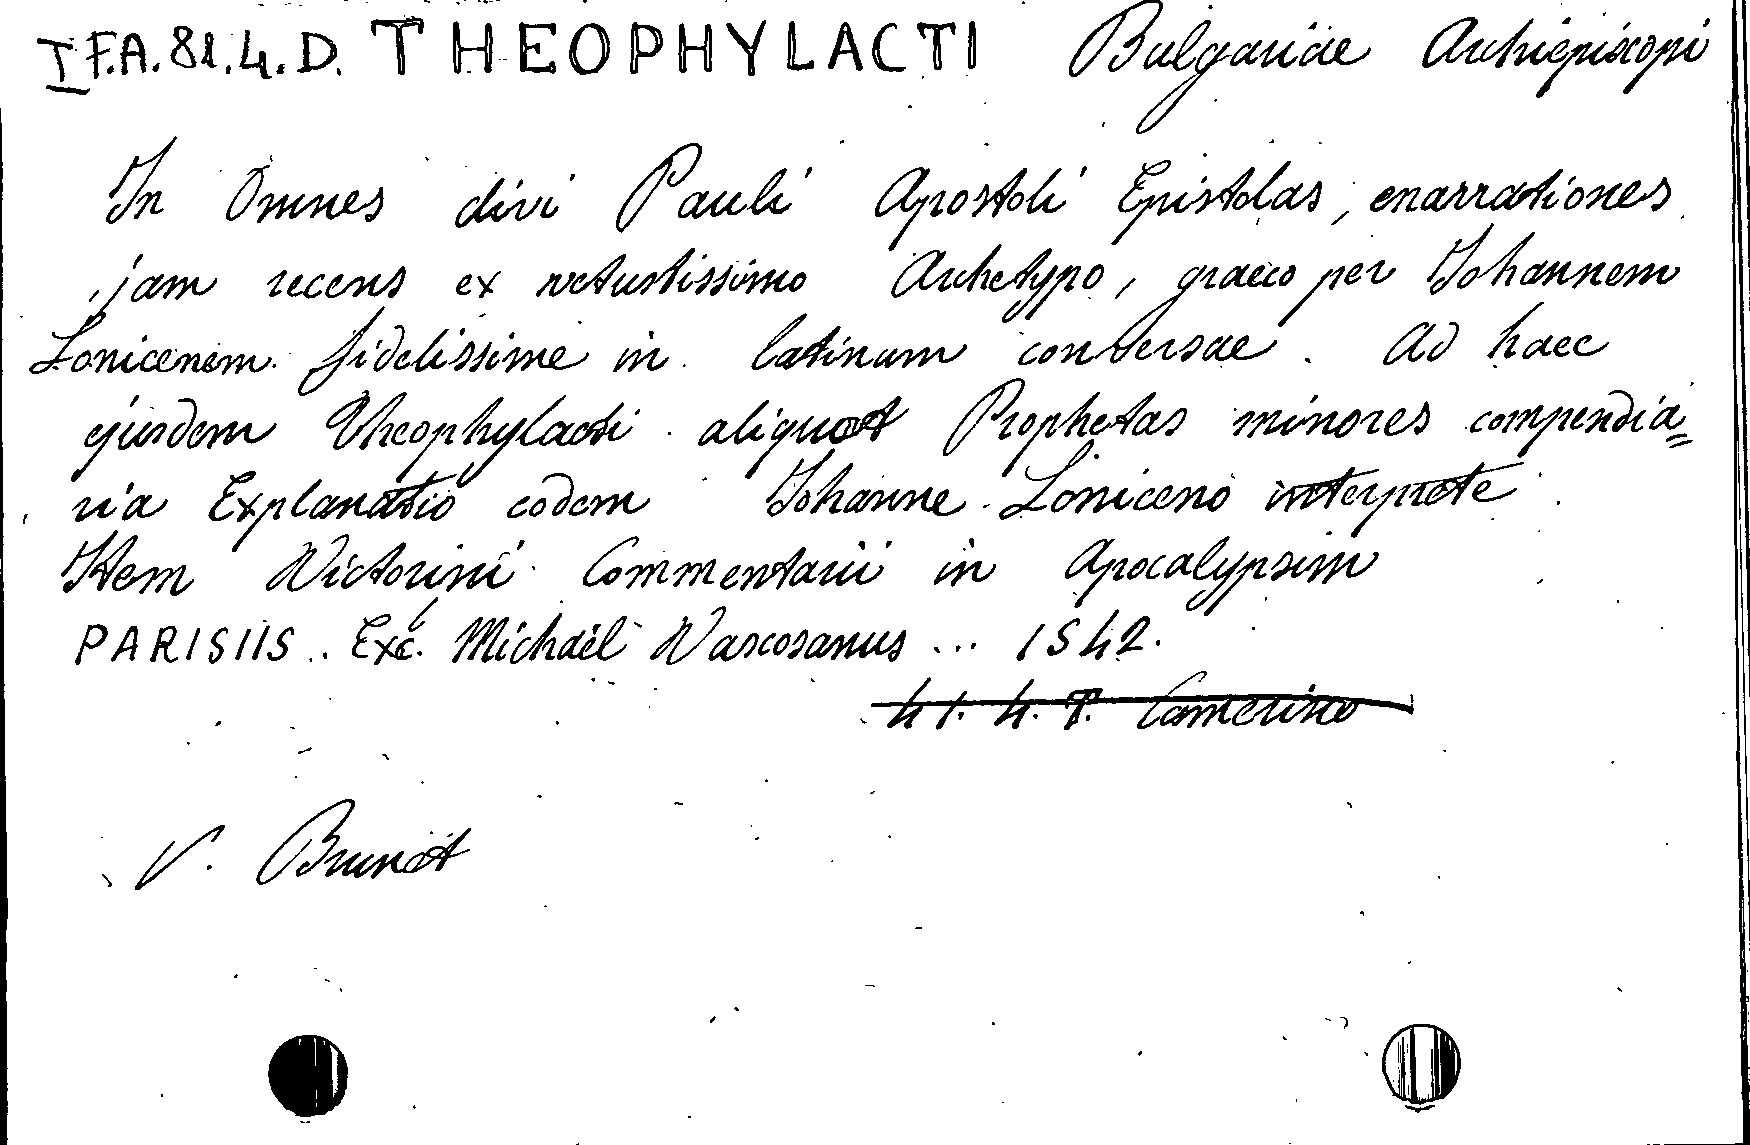 I F.A. 81. 4. D. THEOPHYLACTI Bulgariae Archiepiscopi
In Omnes divi Pauli Apostoli Epistolas, enarrationes
jam recens ex vetustissimo Archetypo, graeco per Johannem
Lonicenem fidelissime in latinum conversae. Ad haec
ejusdem Theophylacti aliquot Prophetas minores compendia=
ria Explanatio eodem Johanne Loniceno interprete
Item Victorini Commentarii in Apocalypsim
PARISIIS.. Exc. Michaël Vascosanus ... 1542.
41. 4. T. Camerino
V. Brunet